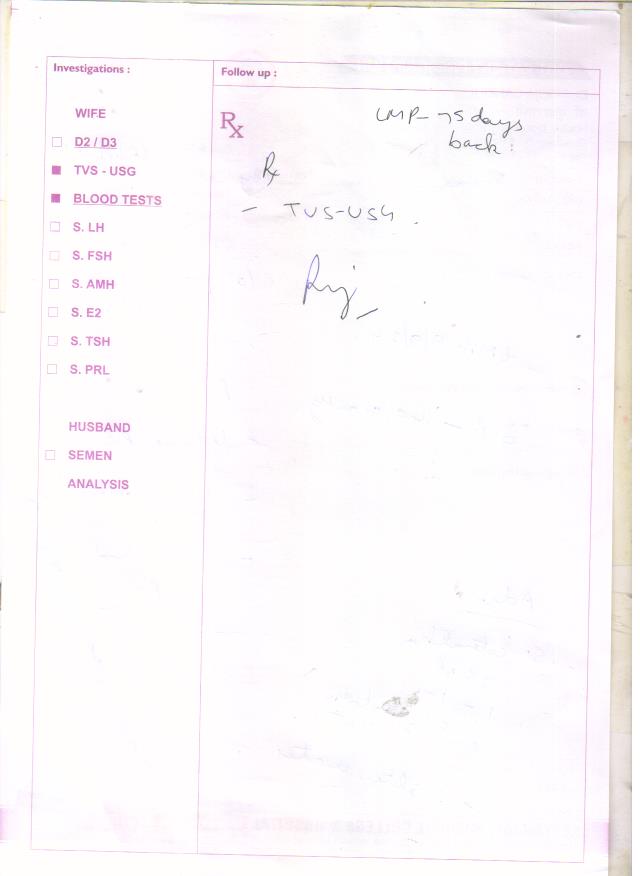 Investigations :
Follow up :
WIFE
☐ D2 / D3
■ TVS - USG
■ BLOOD TESTS
☐ S. LH
☐ S. FSH
☐ S. AMH
☐ S. E2
☐ S. TSH
☐ S. PRL
HUSBAND
☐ SEMEN
ANALYSIS
Rx
LMP- 75 days
back :
Rx
- TVS-USG .